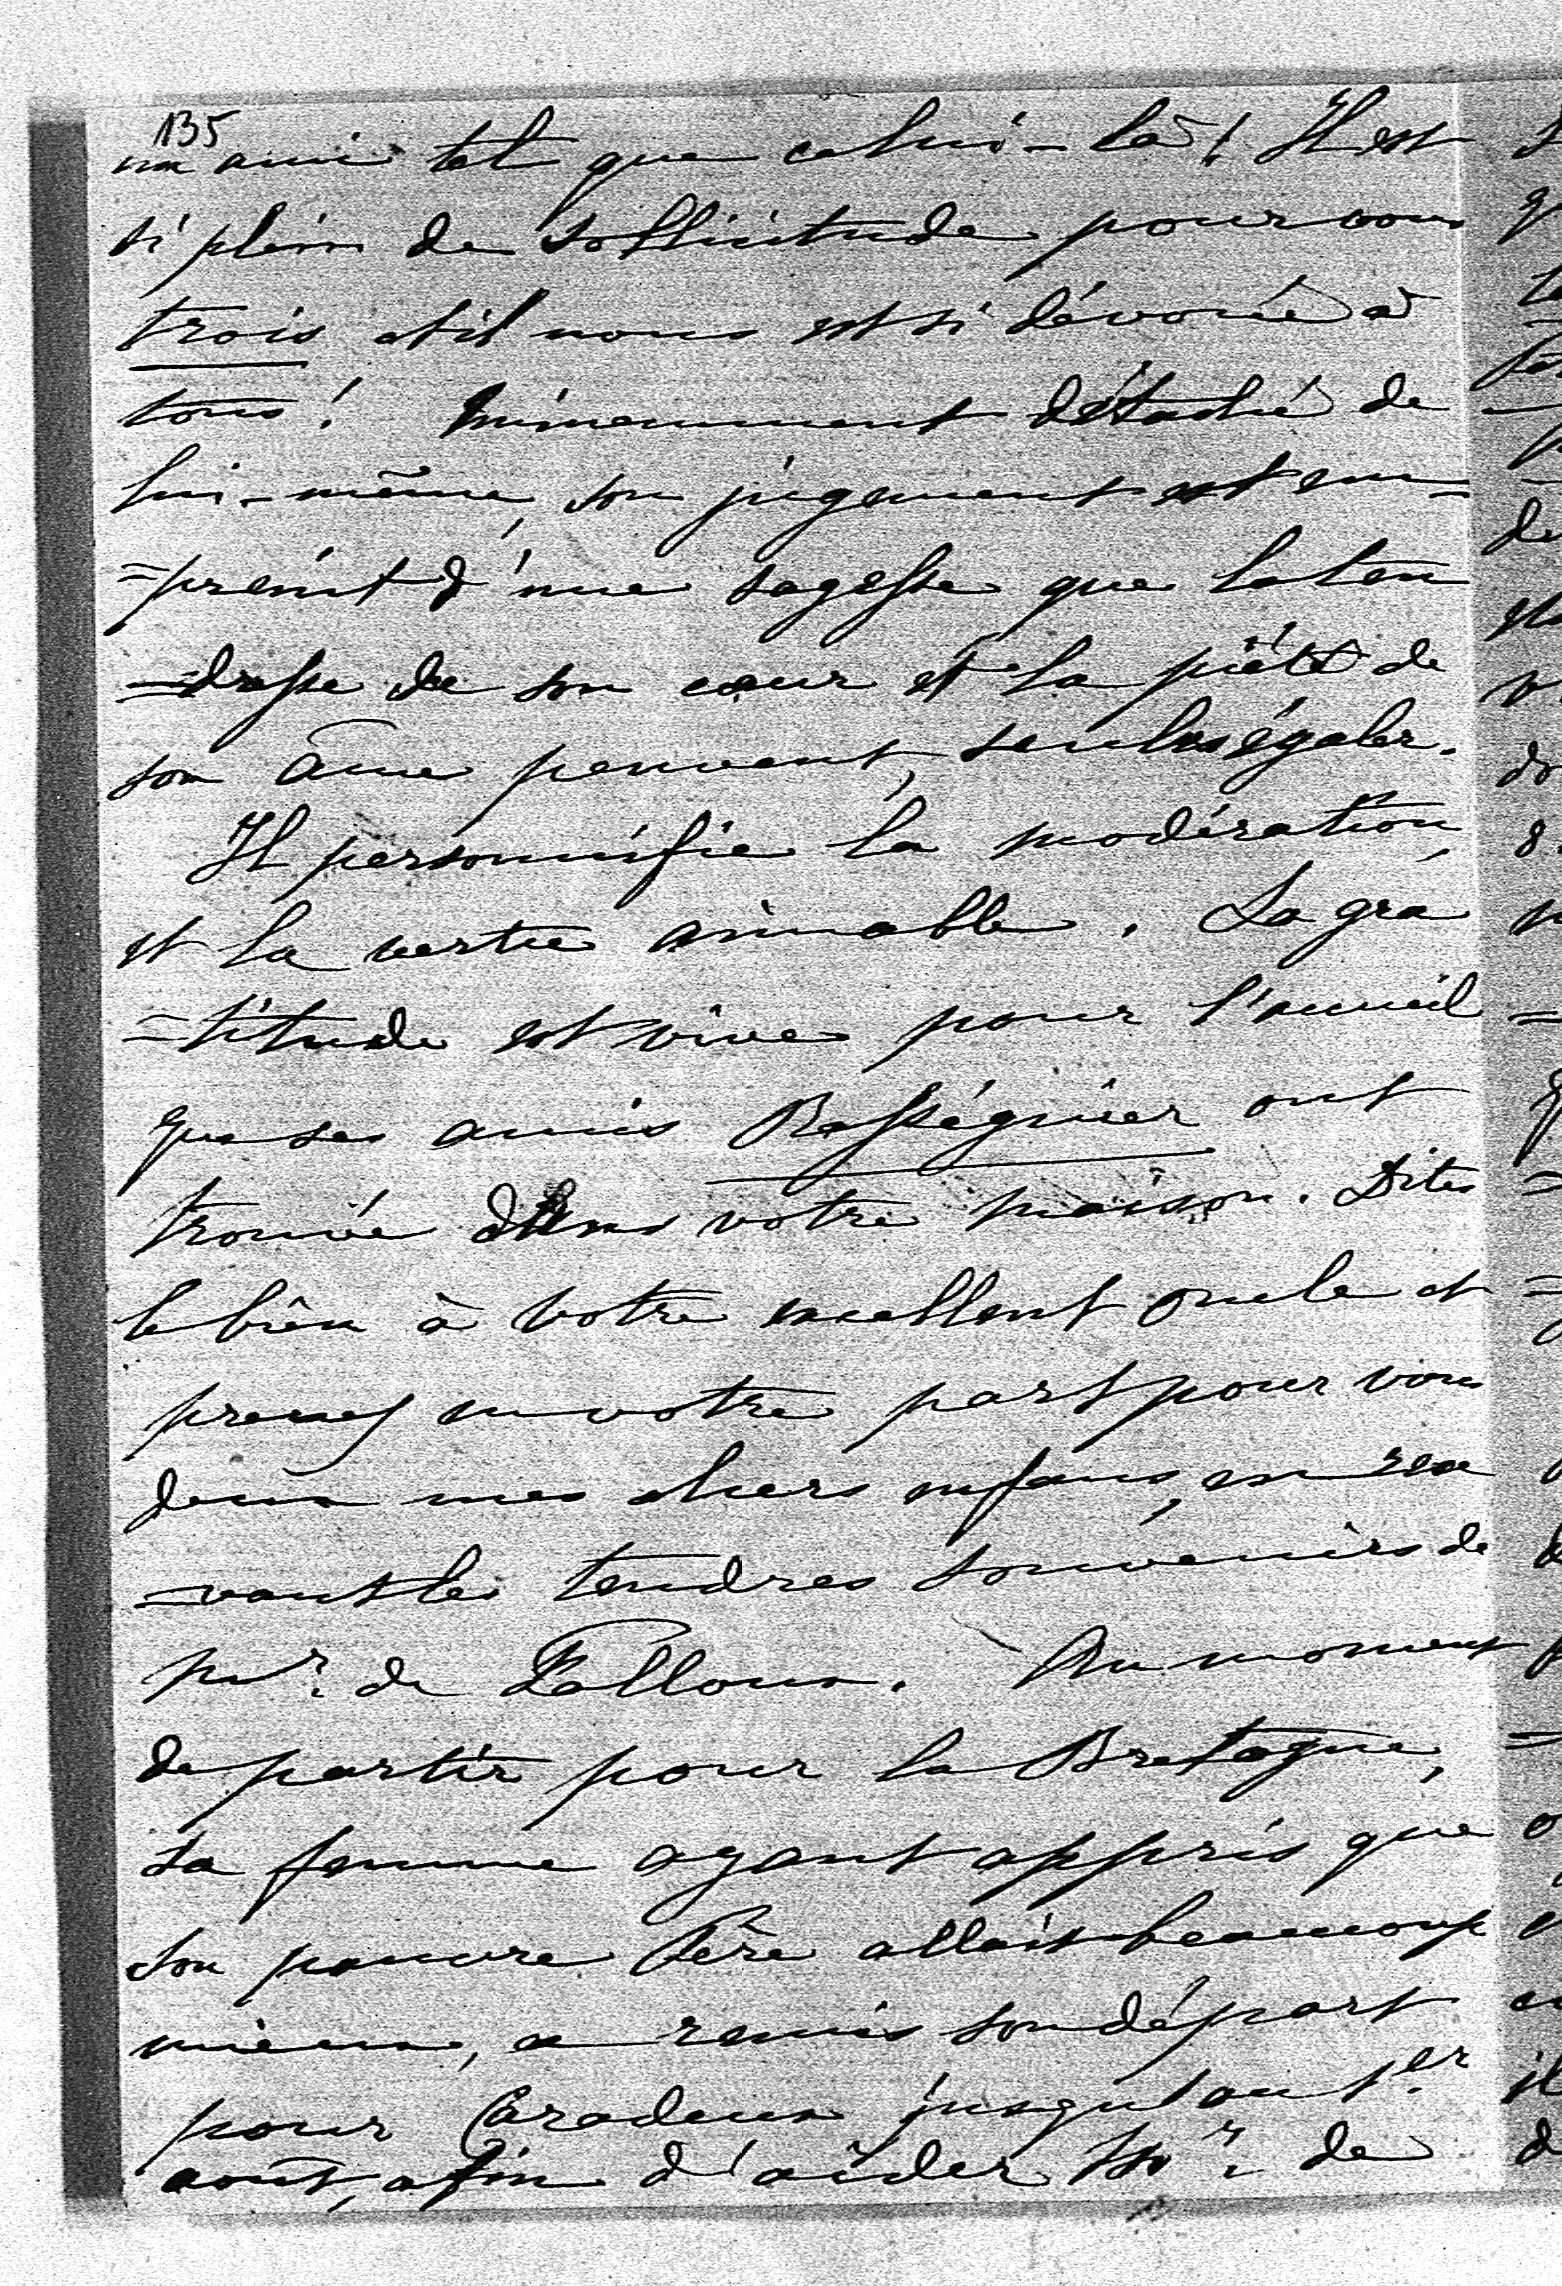 135
un ami tel que celui-là! Il est
si plein de sollicitude pour vous
trois et il nous est si dévoué à
tous! Éminemment détaché de
lui-même, son jugement est em-
=preint d'une sagesse que la ten
=dresse de son cœur et la piété de
son âme peuvent, seules égaler.
Il personnifie la modération,
et la vertu aimable. Sa gra
=titude est vive pour l'accueil
que ses amis Rességuier ont
trouvé dans votre maison. Dites
le bien à votre excellent oncle et
prenez en votre part pour vous
deux mes chers enfans, en rece
=vant les tendres souvenirs de
Mr. de Falloux. Au moment
de partir pour la Bretagne,
sa femme ayant appris que
son pauvre Père allait beaucoup
mieux, a remis son départ
pour Caradeux jusqu'au 1er
aout, afin d'aider Mr. de